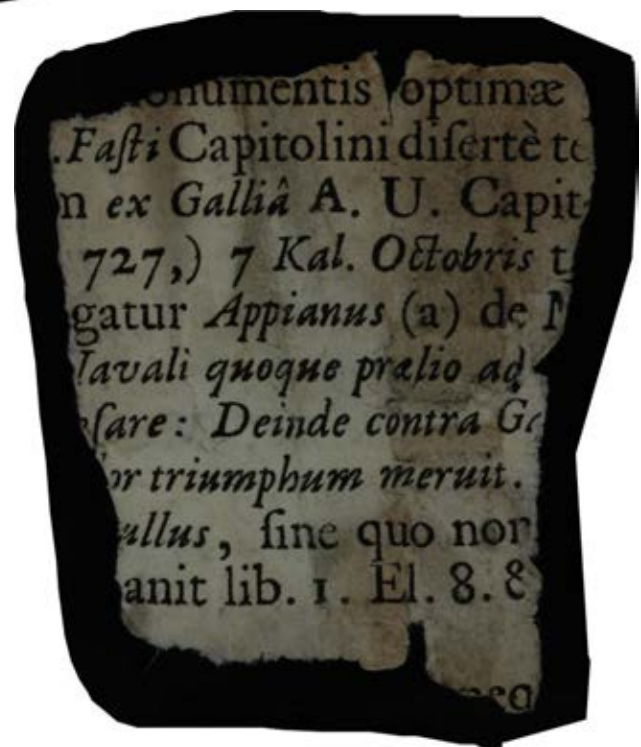 onumentis optimæ
. Faſti Capitolini diſertè te
n ex Galliâ A. U. Capit
727,) 7 Kal. Octobris t
gatur Appianus (a) de
avali quoque prælio ad
ſare: Deinde contra G
or triumphum meruit.
ullus, ſine quo non
anit lib. 1. El. 8. &